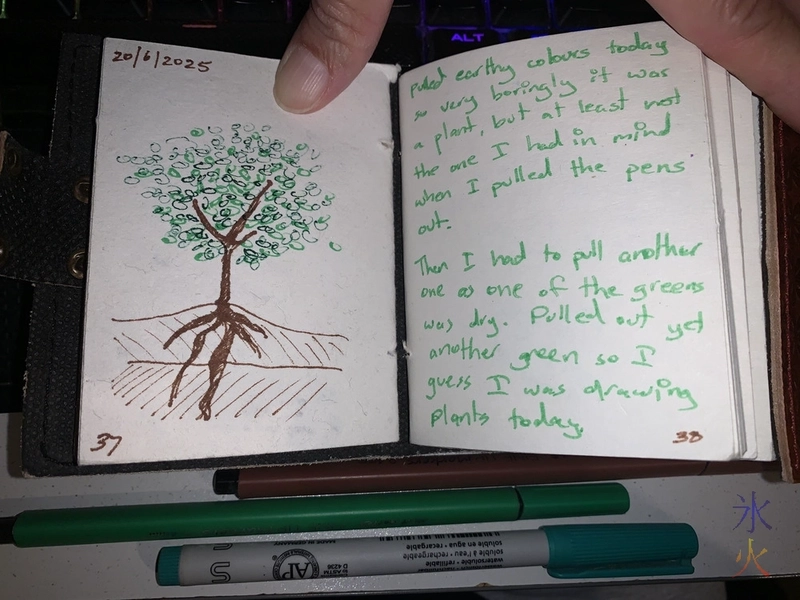 ALT
20/6/2025
37
pulled earthy colours today
so very boringly it was
a plant, but at least not
the one I had in mind
when I pulled the pens
out.
Then I had to pull another
one as one of the greens
was dry. Pulled out yet
another green so I
guess I was drawing
plants today.
38
soluble en agua • rechargeable
soluble à l'eau • rechargeable
watersoluble • refillable
AP
ASTM
D 4236
氷
火